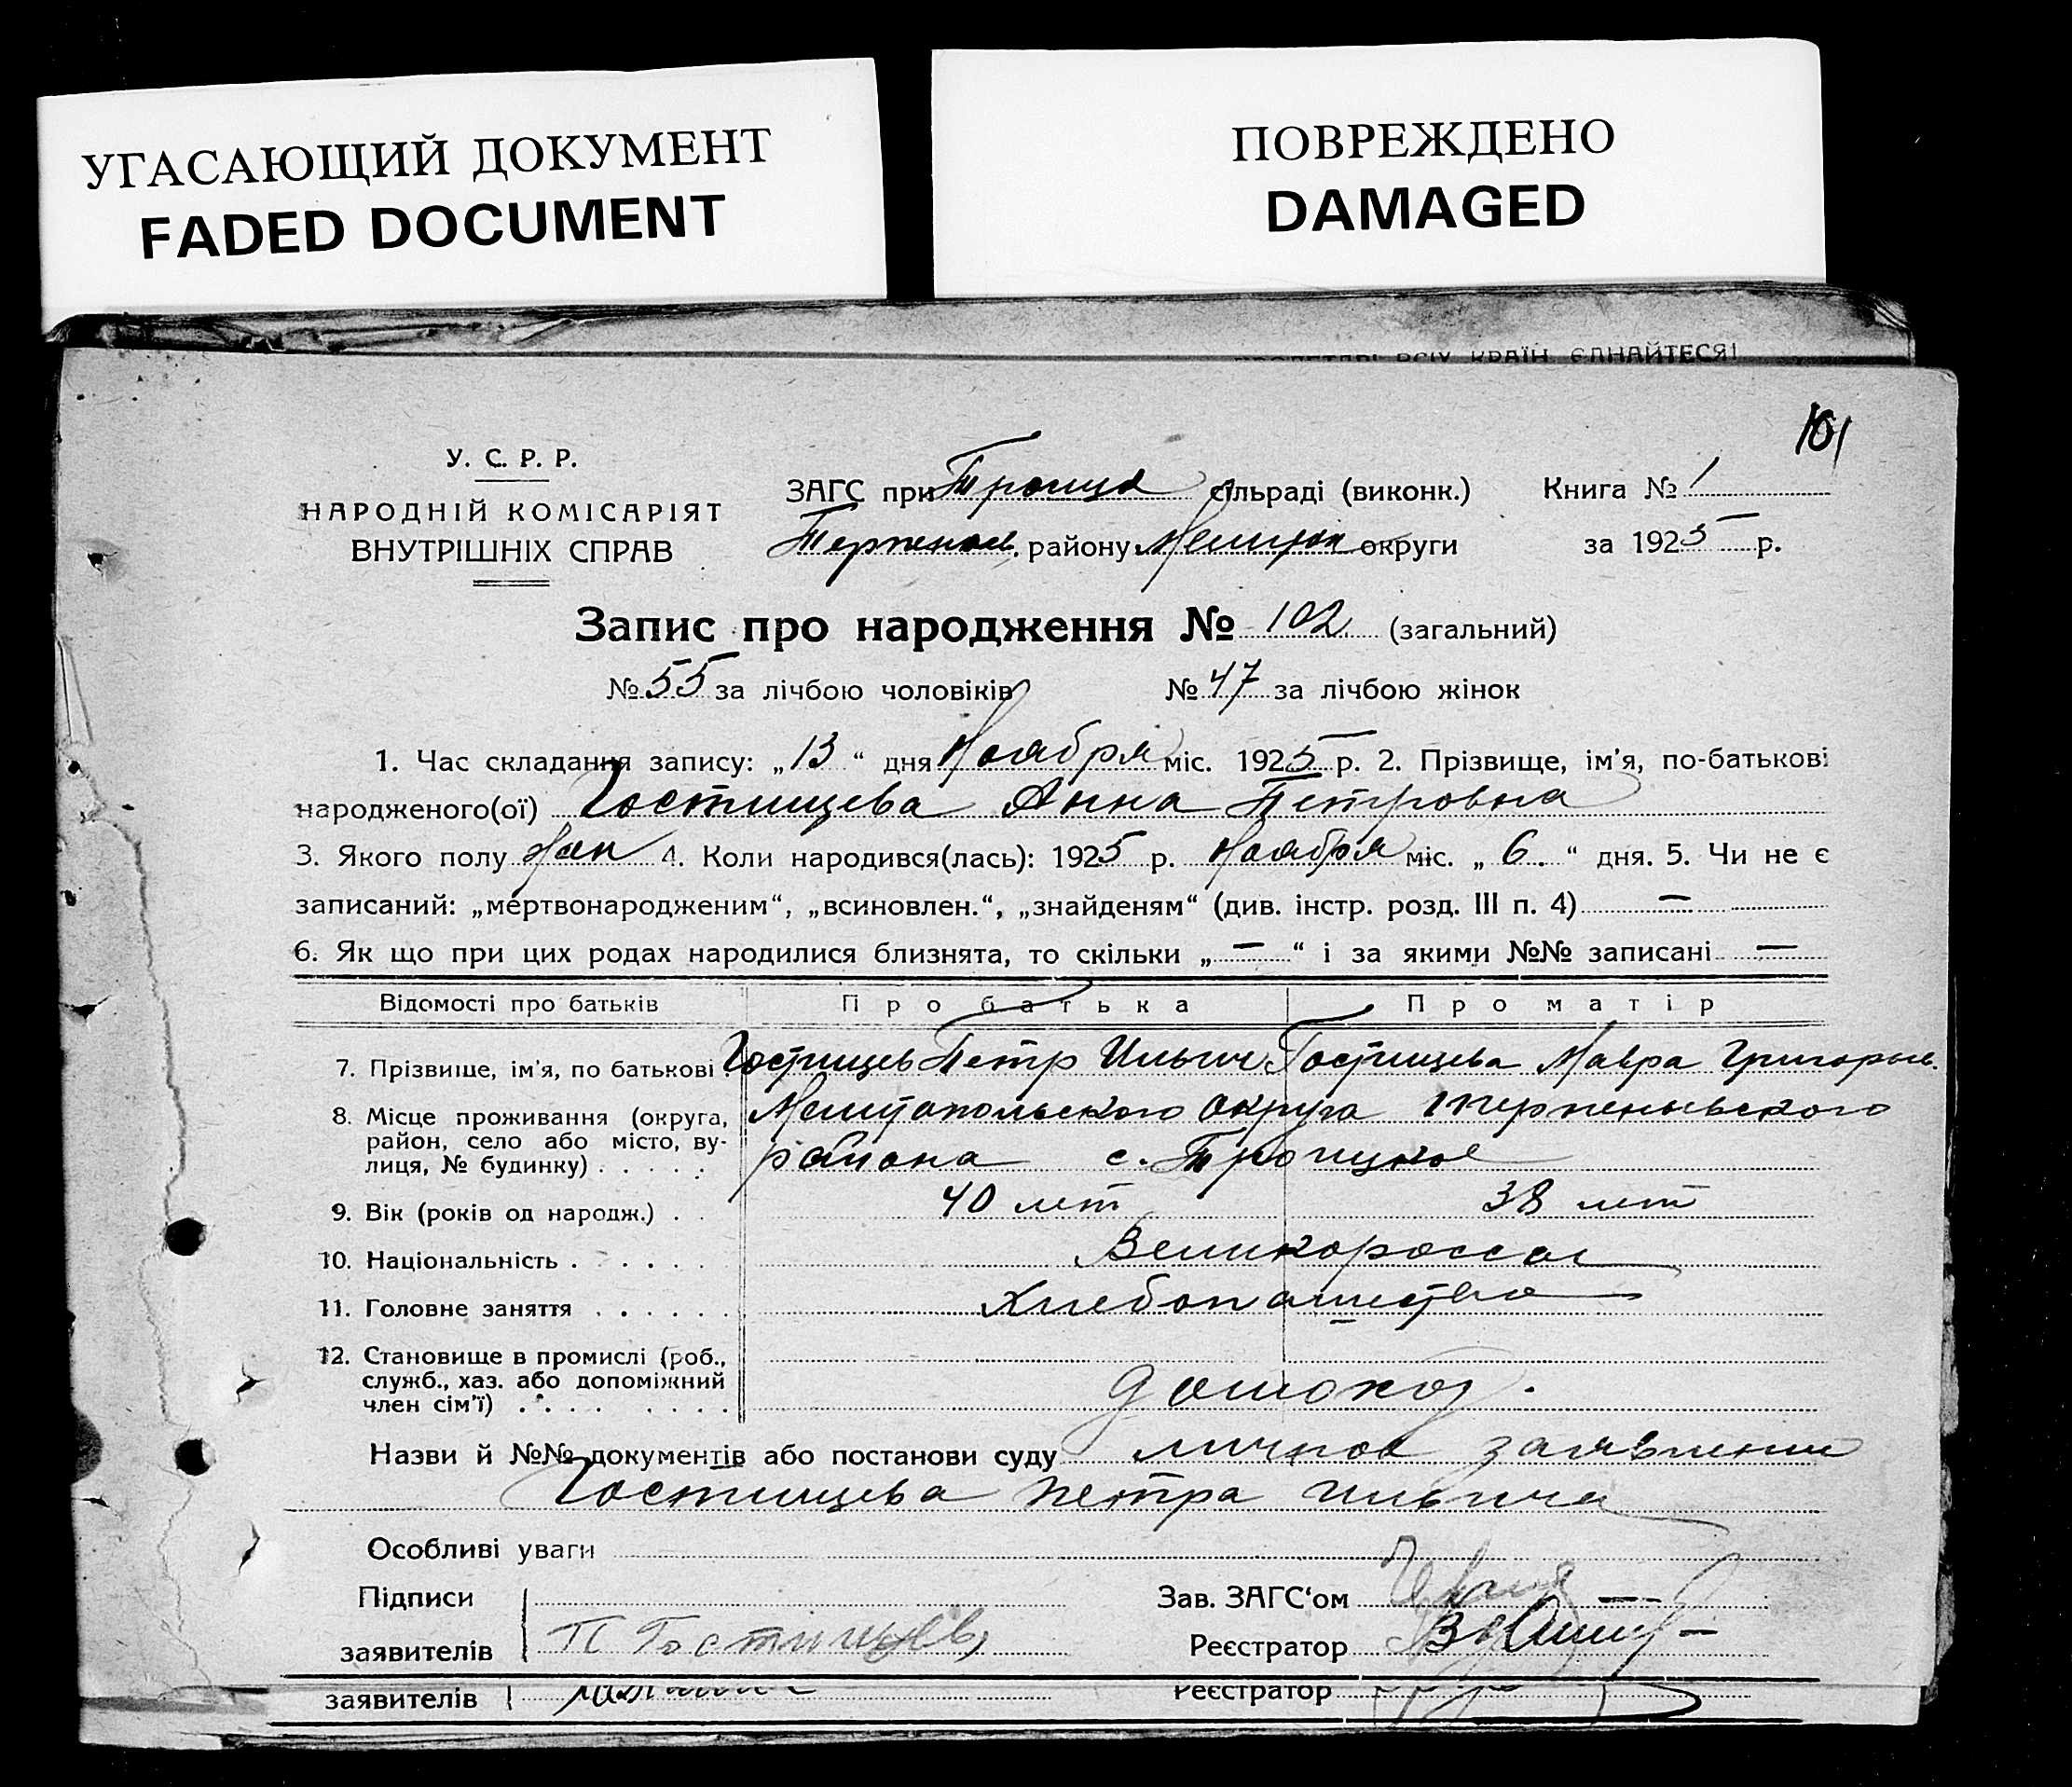 УГАСАЮЩИЙ ДОКУМЕНТ
FADED DOCUMENT
ПОВРЕЖДЕНО
DAMAGED
ПРОЛЕТАРІ ВСІХ КРАЇН, ЄДНАЙТЕСЯ!
101
У. С. Р. Р.
НАРОДНІЙ КОМІСАРІЯТ
ВНУТРІШНІХ СПРАВ
ЗАГС при Троицк сільраді (виконк.) Книга № 1
Терпеньев. району Мелитоп округи за 1925 р.
Запис про народження № 102 (загальний)
№ 55 за лічбою чоловіків № 47 за лічбою жінок
1. Час складання запису: „13“ дня Ноября міс. 1925 р. 2. Прізвище, ім'я, по-батькові
народженого(ої) Гостищева Анна Петровна
3. Якого полу жен 4. Коли народився(лась): 1925 р. Ноября міс. „6.“ дня. 5. Чи не є
записаний: „мертвонародженим“, „всиновлен.“, „знайденям“ (див. інстр. розд. III п. 4) —
6. Як що при цих родах народилися близнята, то скільки „—“ і за якими №№ записані —
Відомості про батьків Про батька Про матір
7. Прізвище, ім'я, по батькові Гостищев Петр Ильич Гостищева Мавра Григорьев.
8. Місце проживання (округа, Мелитопольского округа Терпеньевского
район, село або місто, ву-
лиця, № будинку) . . . . . района с. Троицкое
9. Вік (років од народж.) . . 40 лет 38 лет
10. Національність . . . . . . Великороссы
11. Головне заняття . . . . . . Хлебопашество
12. Становище в промислі (роб.,
служб., хаз. або допоміжний
член сім'ї) . . . . . . . . домохоз.
Назви й №№ документів або постанови суду личное заявление
Гостищева Петра Ильича
Особливі уваги
Підписи Зав. ЗАГС'ом
заявителів П Гостищев Реєстратор
заявителів Реєстратор